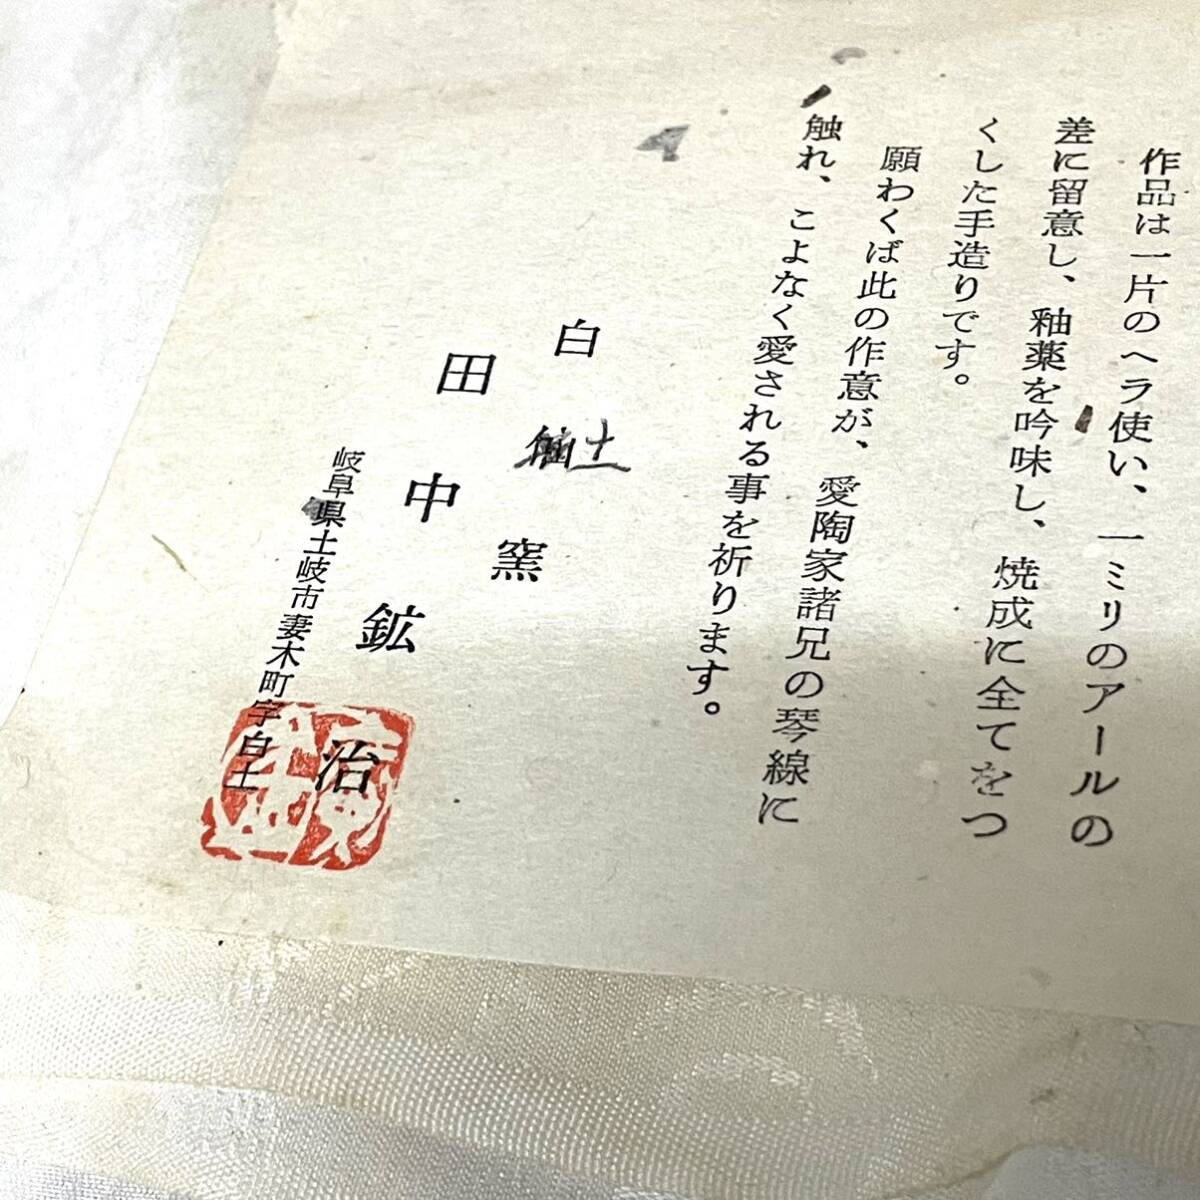 作品は一片のヘラ使い、一ミリのアールの
差に留意し、釉薬を吟味し、焼成に全てをつ
くした手造りです。
願わくば此の作意が、愛陶家諸兄の琴線に
触れ、こよなく愛される事を祈ります。
白土窯
田中鉱治
岐阜県土岐市妻木町字白土